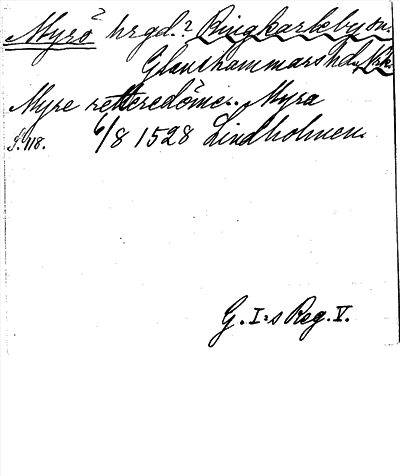 Myrö hrgd.? Ringkarleby sn.
Glanshammars hd., Nrk.
Myre retteredömer. Myra
S. 118. 6/8 1528 Lindholmen.
G. I:s Reg. V.